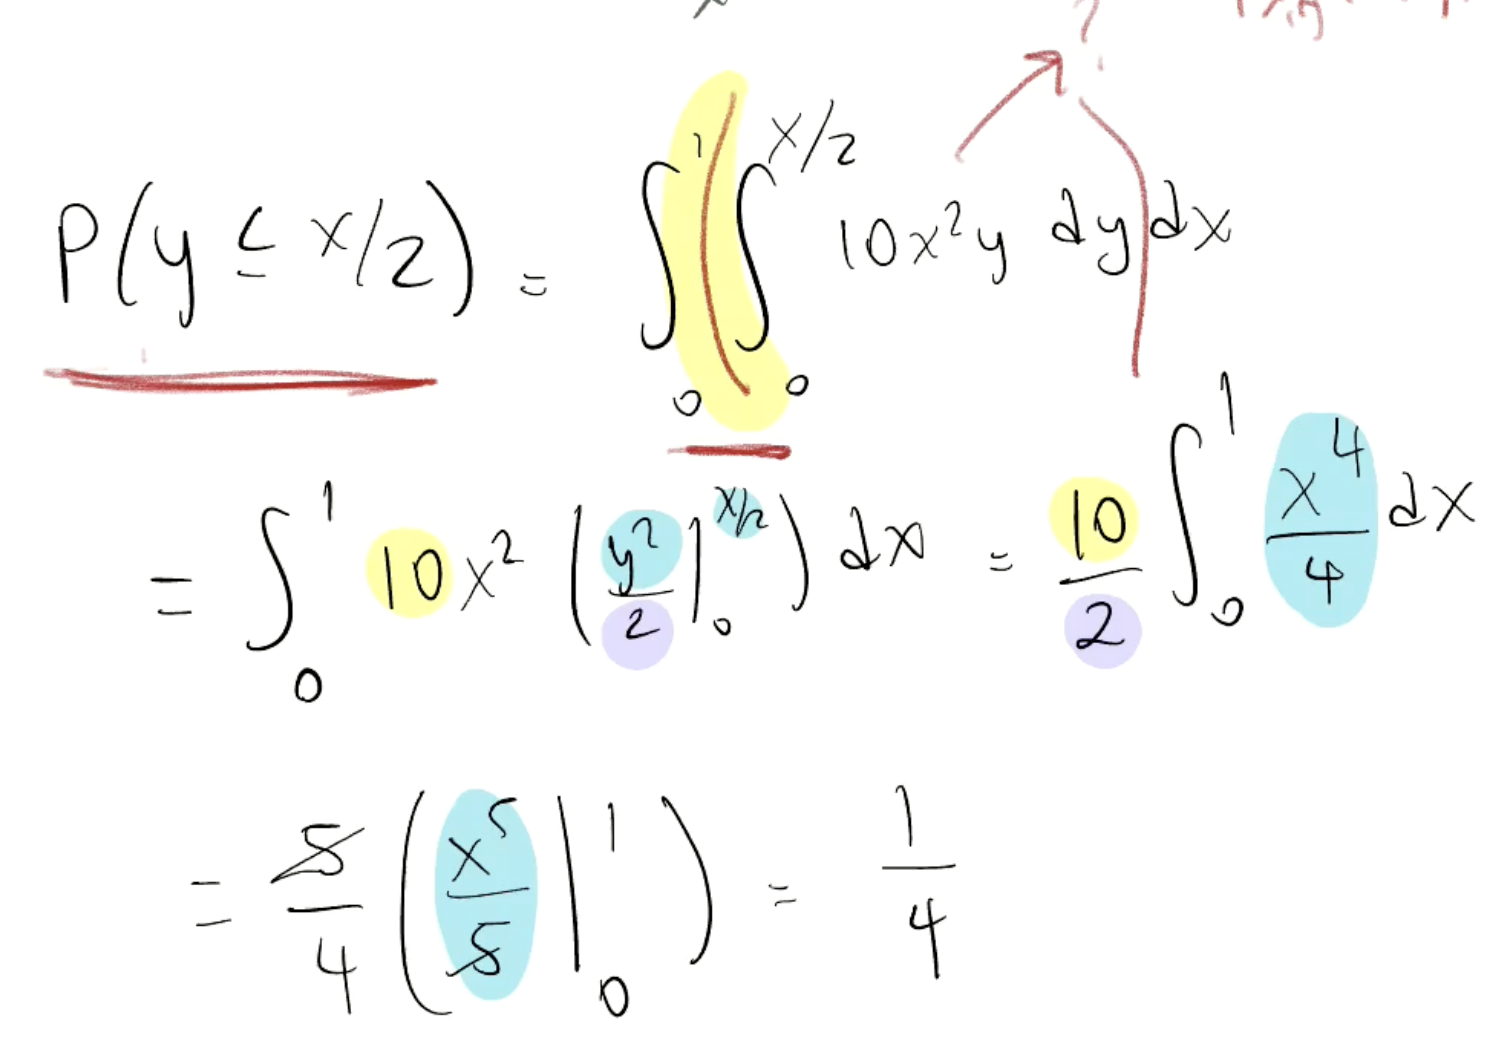 P(y ≤ x/2) = ∫₀¹ ( ∫₀^{x/2} 10x²y dy ) dx
= ∫₀¹ 10x² ( y²/2 |₀^{x/2} ) dx = 10/2 ∫₀¹ x⁴/4 dx
= 5/4 ( x⁵/5 |₀¹ ) = 1/4